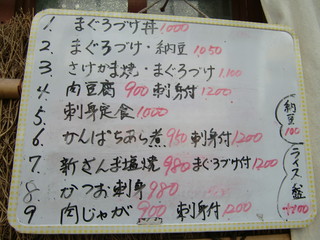 1. まぐろづけ丼 1000
2. まぐろづけ・納豆 1050
3. さけかま焼・まぐろづけ 1100
4 肉豆腐 900 刺身付 1200
5 刺身定食 1000
6 かんぱちあら煮 950 刺身付 1200
7 新さんま塩焼 980 まぐろづけ付 1200
8. かつお刺身 980
9 肉じゃが 900 刺身付 1200
納豆 100
ライス大盛